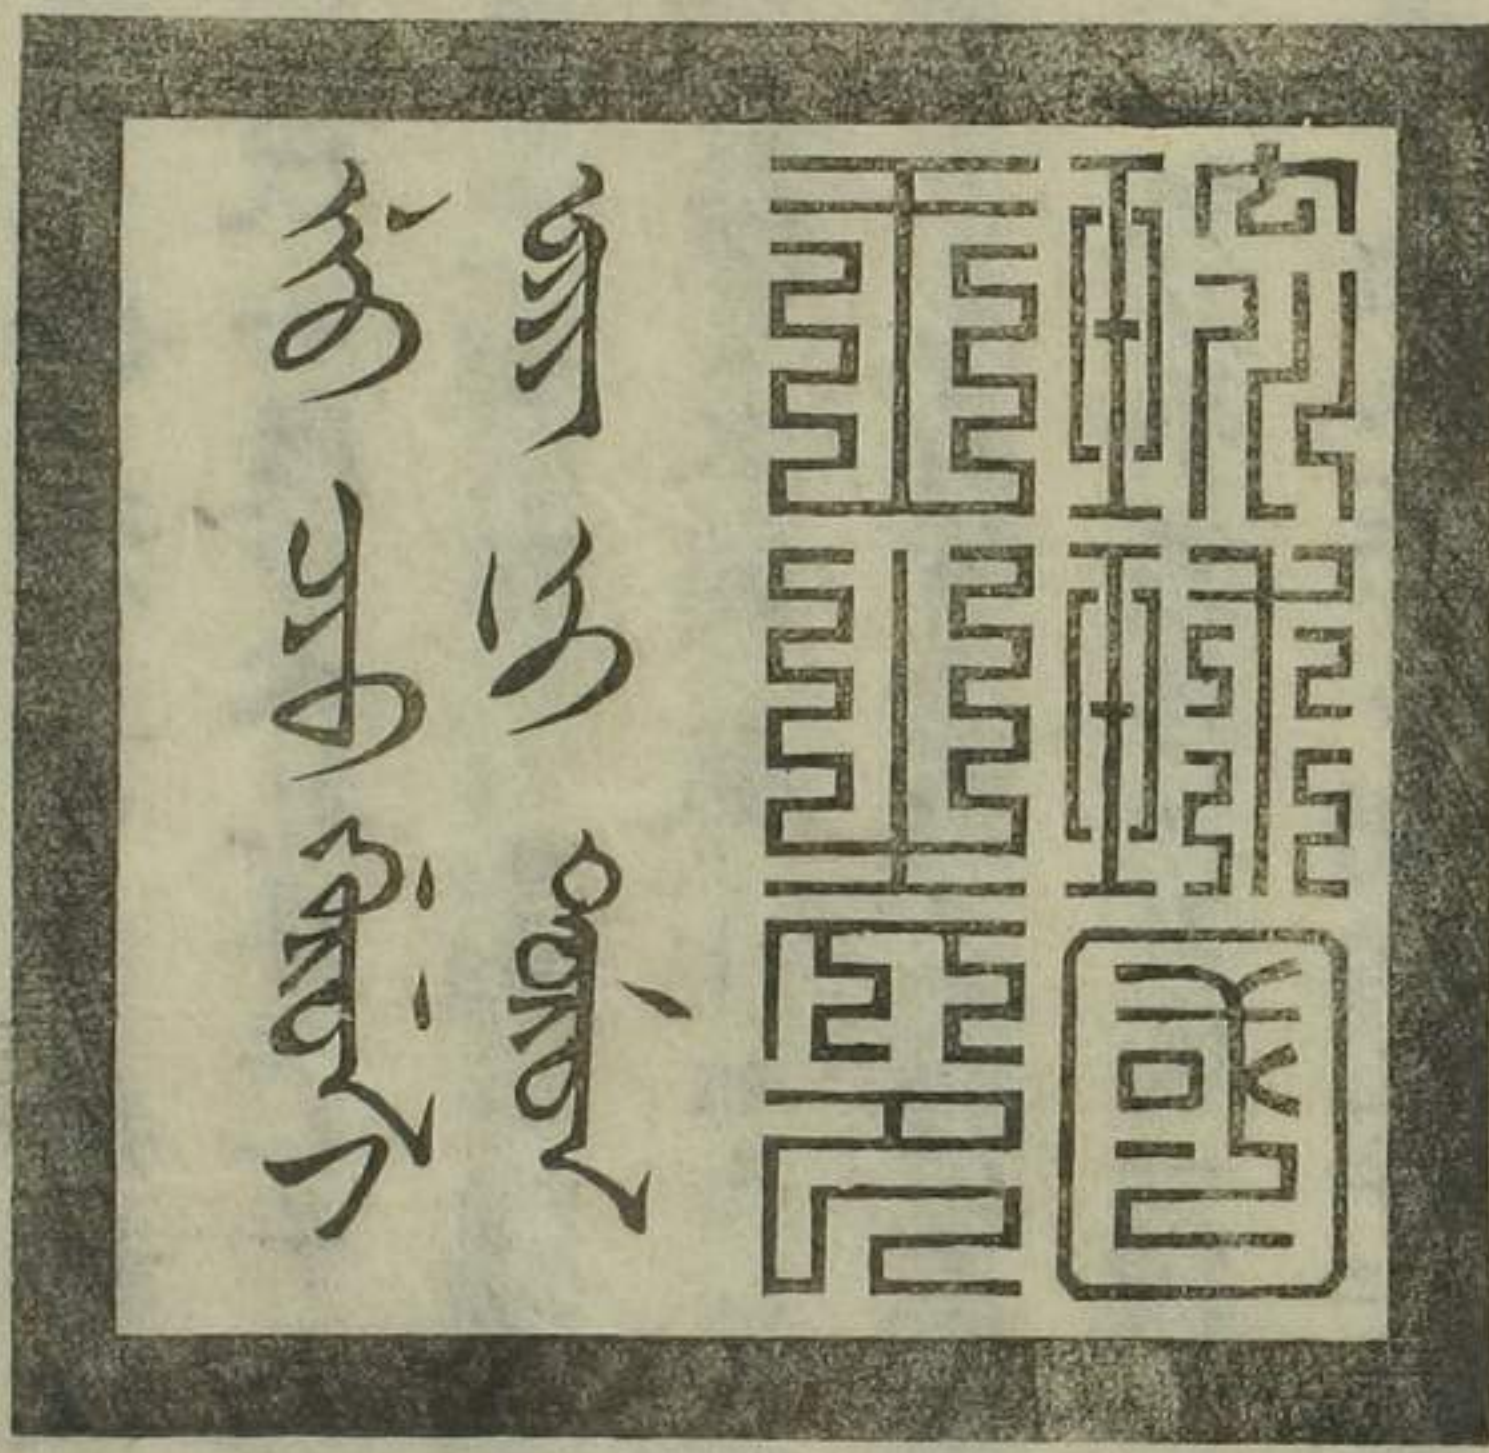 琉球國
王之印
ᠯᡳᠣ ᠴᡳᠣ ᡤᡠᡵᡠᠨ ᡳ
ᠸᠠᠩ ᠨᡳ ᡩᠣᡵᠣᠨ